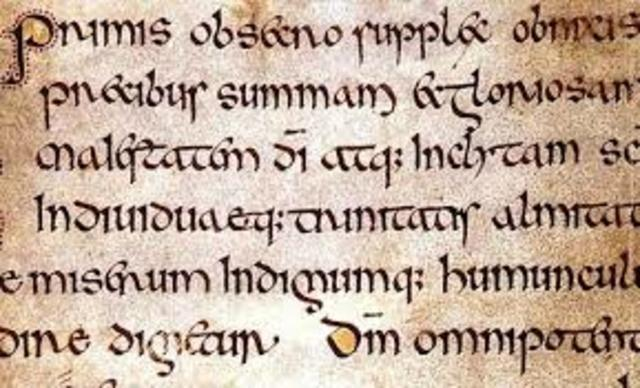 Primis obsecro supplex obnixis
precibus summam & gloriosam
maiestatem dī atq; inclytam sc
indiuiduaeq; trinitatis almitat
e miserum indignumq; humuncul
dire dignetur Dm̄ omnipotent